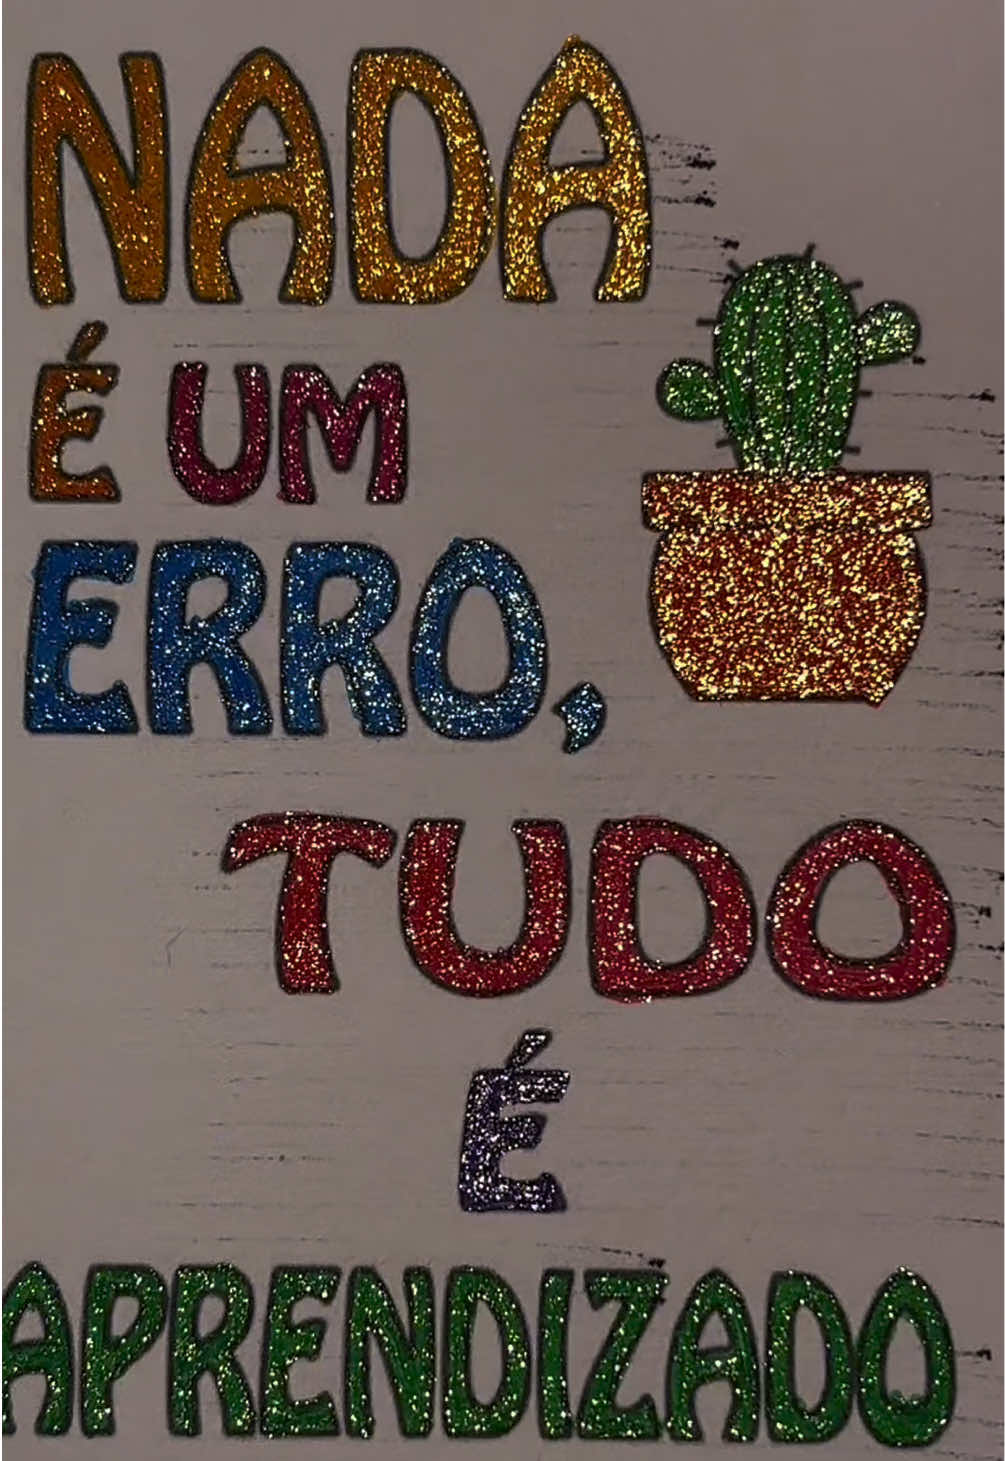 NADA
É UM
ERRO,
TUDO
É
APRENDIZADO